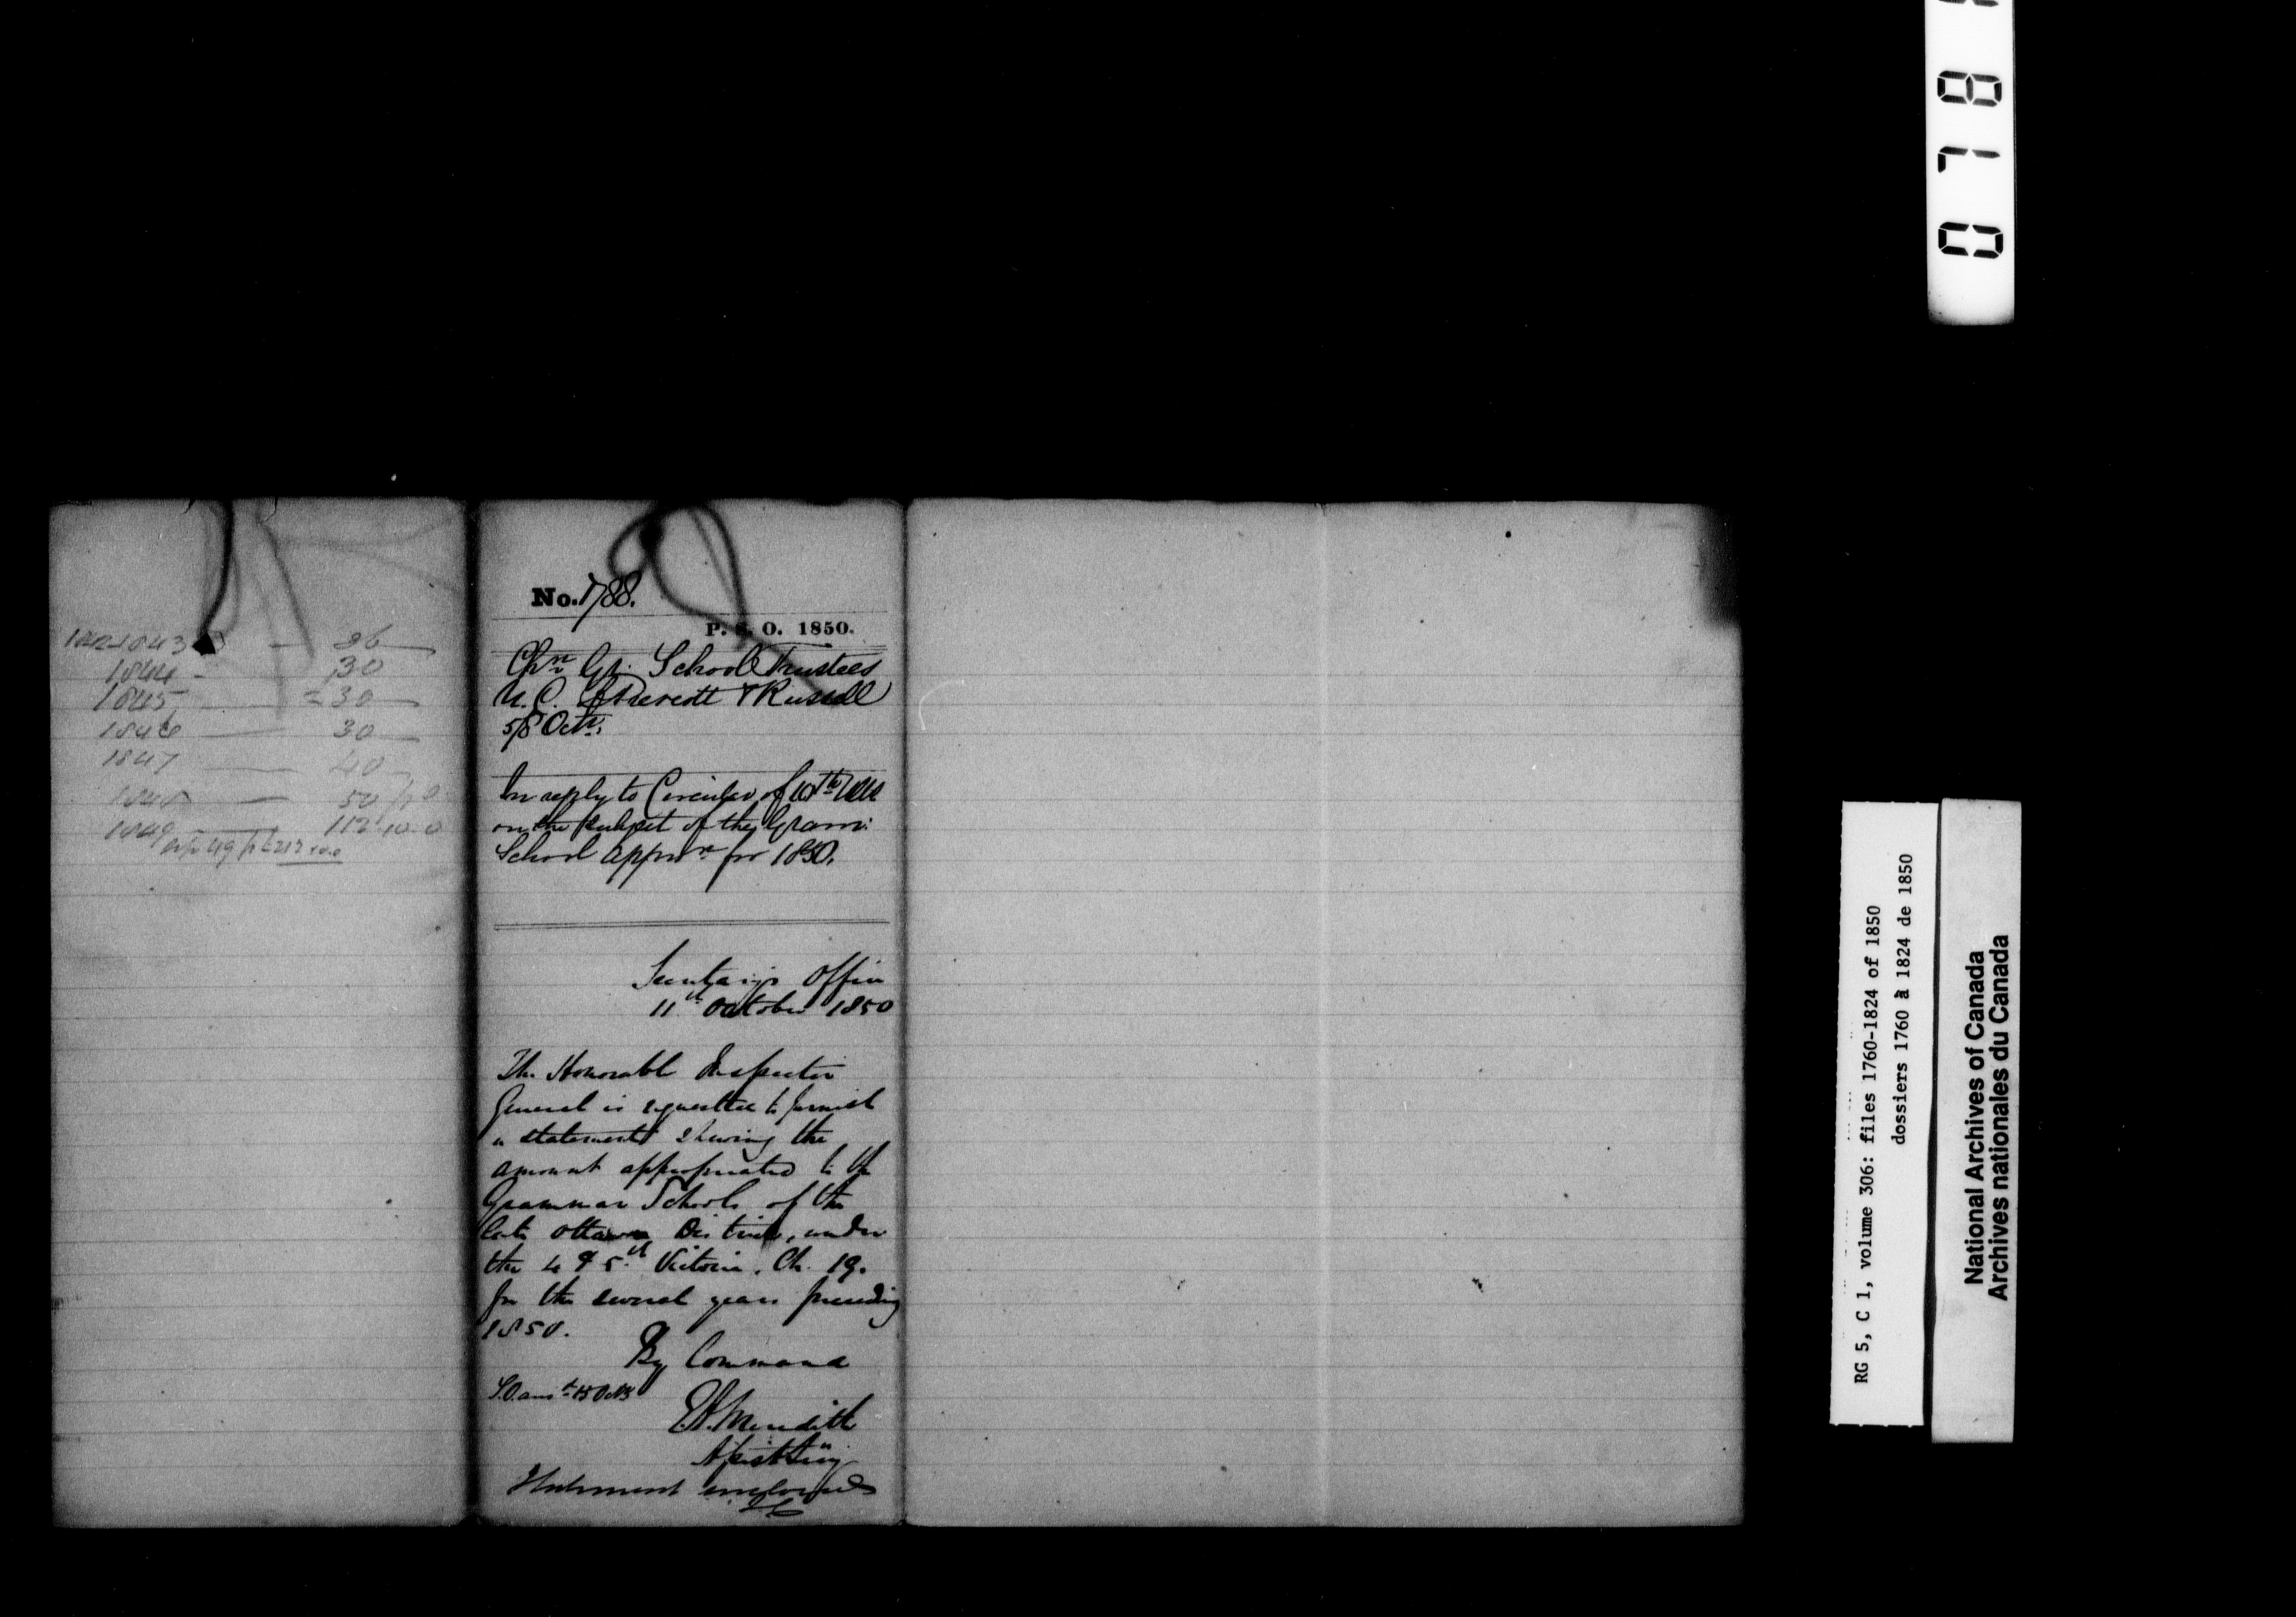 1842-1843 — 26
1844 - 30
1845 — = 30
1846 — 30
1847 — 40
1848 — 50
1849 — 112.10.0
No. 1788.
P. S. O. 1850.
Chn Gr. School Trustees
U. C. of Prescott & Russell
5/8 Octr.
In reply to Circular of 10th
on the subject of the Gram:
School apprn for 1850.
Secretary's Office
11th October 1850
The Honorable Inspector
General is requested to furnish
a statement shewing the
amount appropriated to the
Grammar Schools of the
late Ottawa District, under
the 4 & 5th Victoria, Ch. 19.
for the several years preceding
1850.
By Command
E.A. Meredith
Asst Secy
Statement enclosed
0 7 8
RG 5, C 1, volume 306: files 1760-1824 of 1850
dossiers 1760 à 1824 de 1850
National Archives of Canada
Archives nationales du Canada